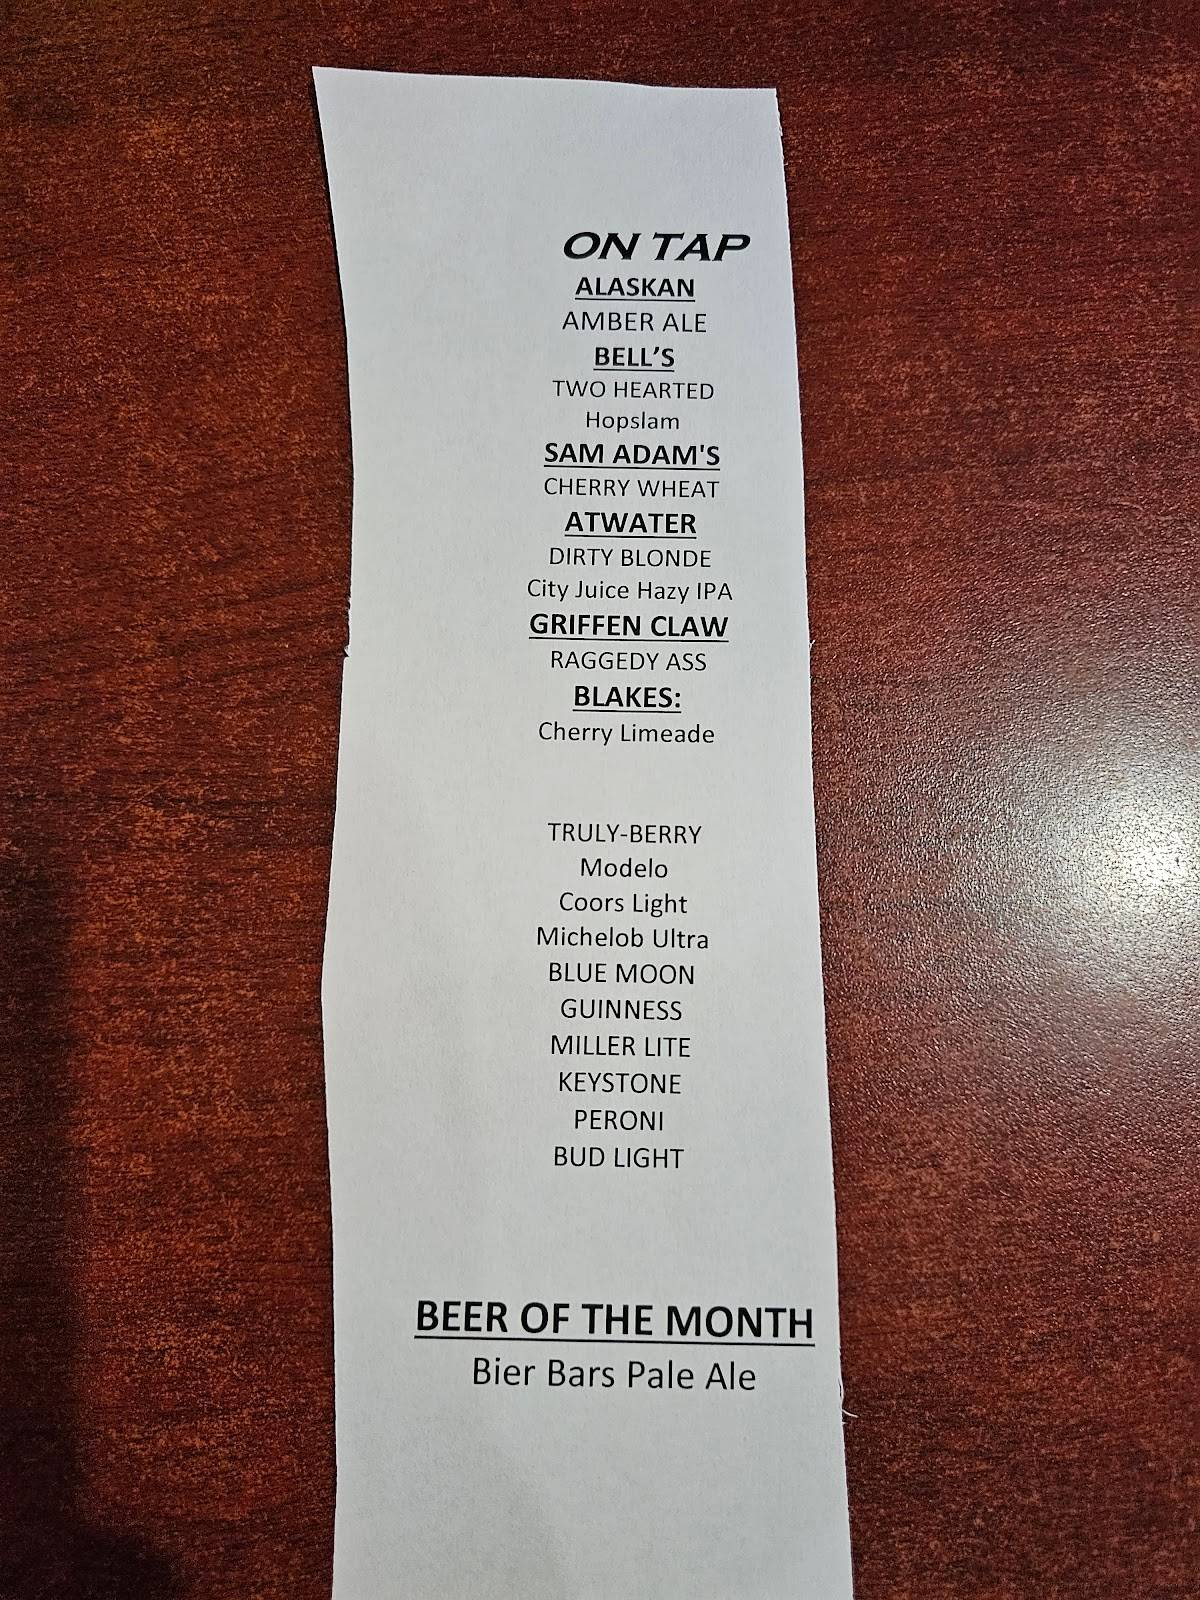 ON TAP
ALASKAN
AMBER ALE
BELL'S
TWO HEARTED
Hopslam
SAM ADAM'S
CHERRY WHEAT
ATWATER
DIRTY BLONDE
City Juice Hazy IPA
GRIFFEN CLAW
RAGGEDY ASS
BLAKES:
Cherry Limeade
TRULY-BERRY
Modelo
Coors Light
Michelob Ultra
BLUE MOON
GUINNESS
MILLER LITE
KEYSTONE
PERONI
BUD LIGHT
BEER OF THE MONTH
Bier Bars Pale Ale